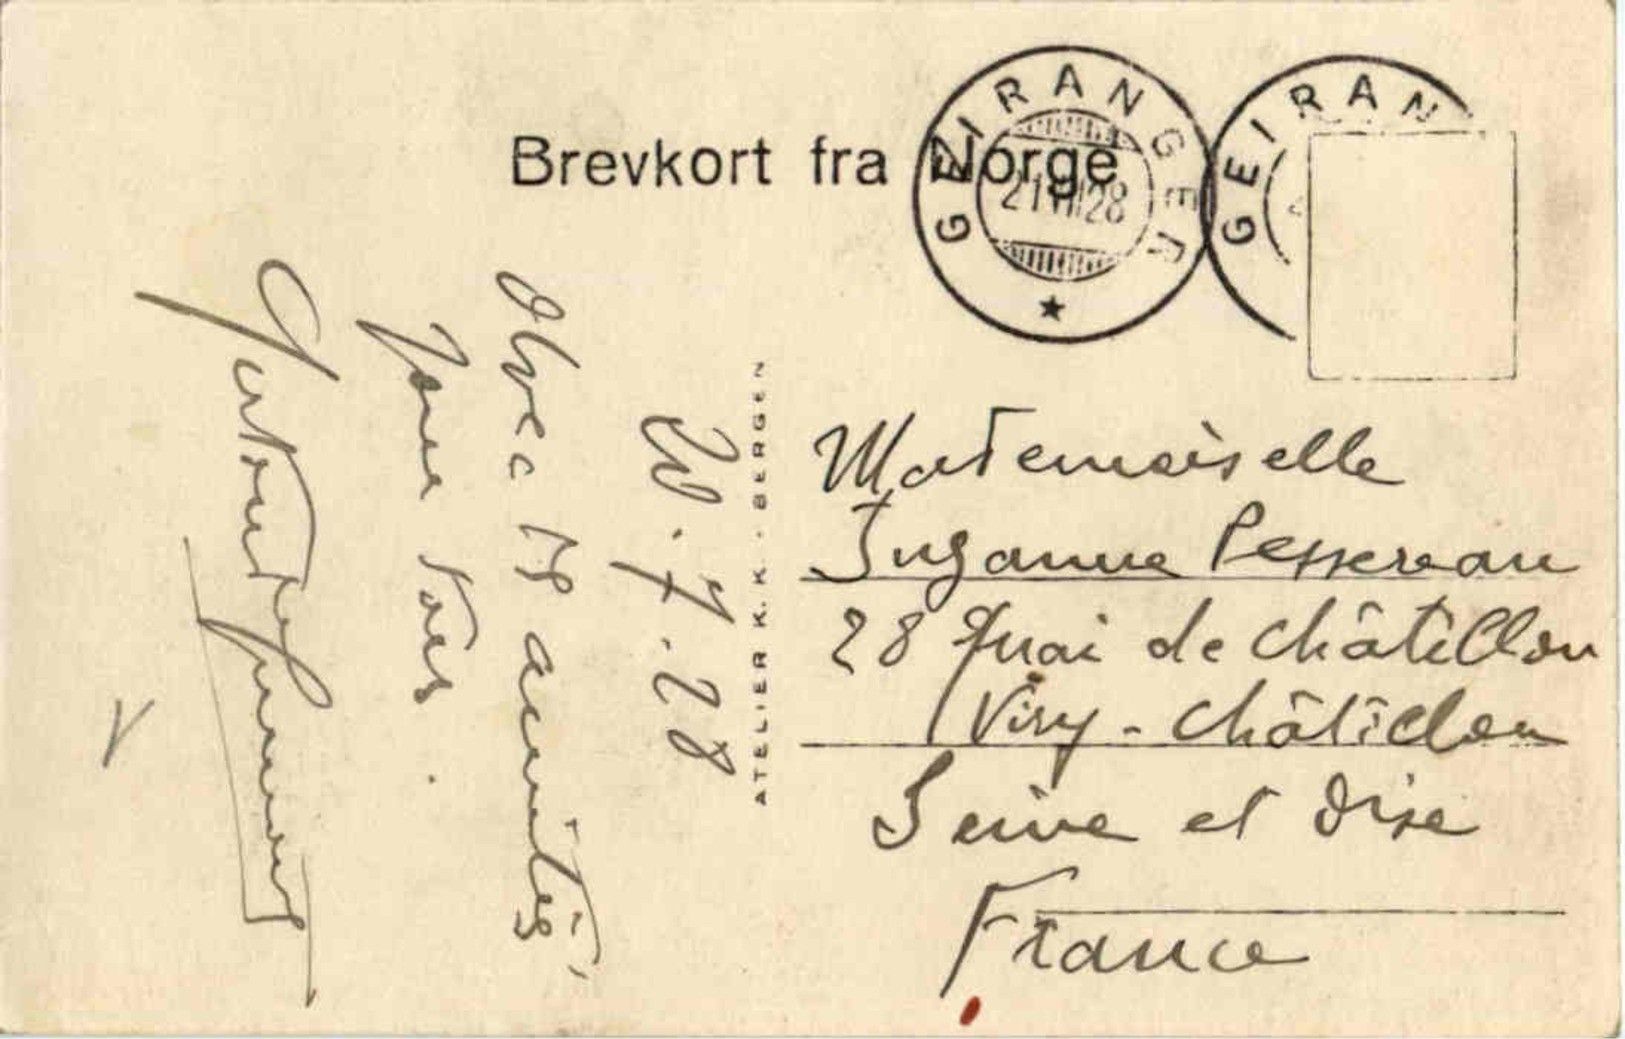 Brevkort fra Norge
GEIRANGER
21 VII 28
GEIRAN
ATELIER K.K. - BERGEN
20.7.28
Avec 18 amitiés
pour vous.
Mademoiselle
Suzanne Pessereau
28 Quai de Châtillon
Viry-Châtillon
Seine et Oise
France